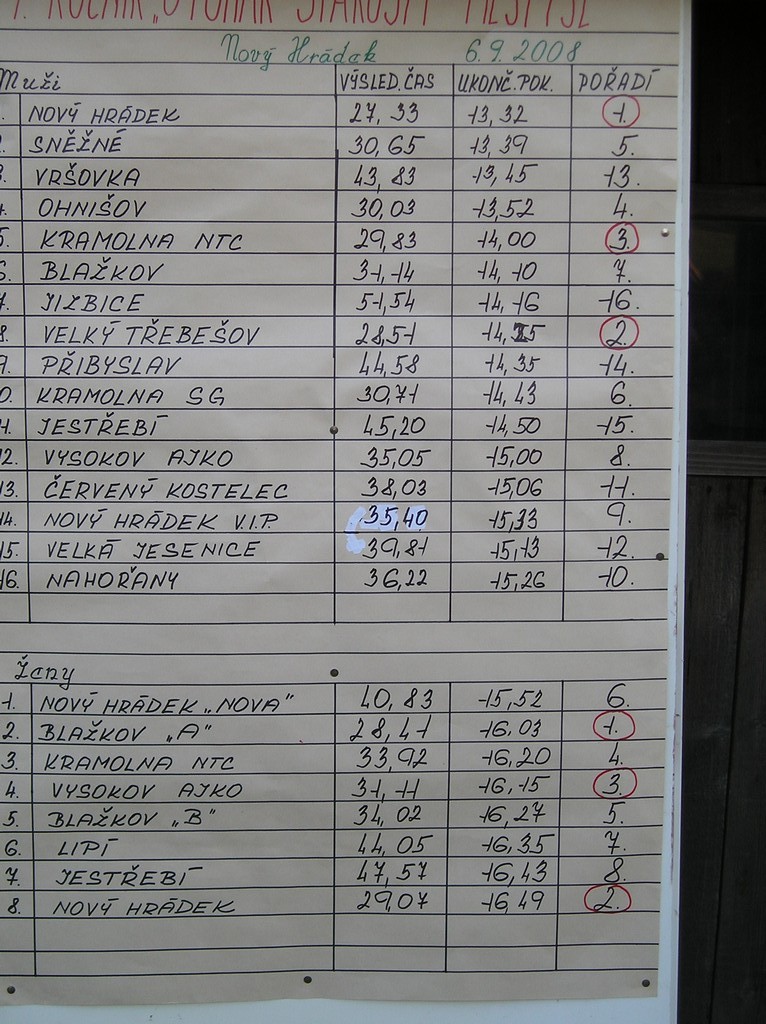 . ROČNÍK „O POHÁR STAROSTY MĚSTYSE
Nový Hrádek 6.9.2008
Muži VÝSLED.ČAS UKONČ.POK. POŘADÍ
. NOVÝ HRÁDEK 27,33 13,32 1.
SNĚŽNÉ 30,65 13,39 5.
. VRŠOVKA 43,83 13,45 13.
. OHNIŠOV 30,03 13,52 4.
5. KRAMOLNA NTC 29,83 14,00 3.
6. BLAŽKOV 31,14 14,10 7.
7. JILBICE 51,54 14,16 16.
8. VELKÝ TŘEBEŠOV 28,51 14,25 2.
9. PŘIBYSLAV 44,58 14,35 14.
0. KRAMOLNA SG 30,71 14,43 6.
11. JESTŘEBÍ 45,20 14,50 15.
12. VYSOKOV AJKO 35,05 15,00 8.
13. ČERVENÝ KOSTELEC 38,03 15,06 11.
14. NOVÝ HRÁDEK V.I.P. 35,40 15,33 9.
15. VELKÁ JESENICE 39,81 15,13 12.
16. NAHOŘANY 36,22 15,26 10.
Ženy
1. NOVÝ HRÁDEK „NOVA" 40,83 15,52 6.
2. BLAŽKOV „A" 28,41 16,03 1.
3. KRAMOLNA NTC 33,92 16,20 4.
4. VYSOKOV AJKO 31,11 16,15 3.
5. BLAŽKOV „B" 34,02 16,27 5.
6. LIPÍ 44,05 16,35 7.
7. JESTŘEBÍ 47,57 16,43 8.
8. NOVÝ HRÁDEK 29,07 16,49 2.